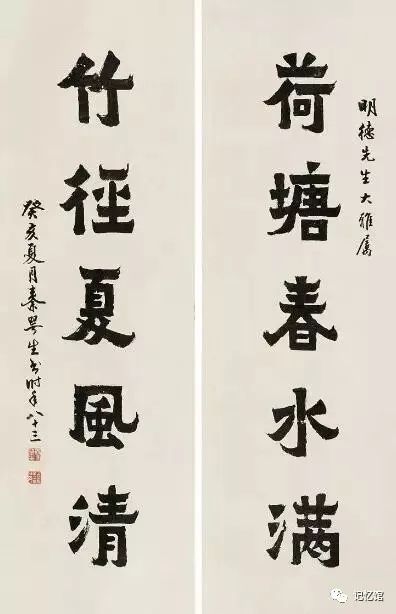 明德先生大雅属
荷塘春水满
竹径夏風清
癸亥夏月秦咢生书时年八十三
记忆馆